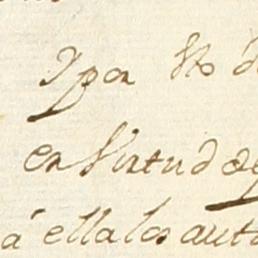 Y por
en Virtud de
a ella los auto